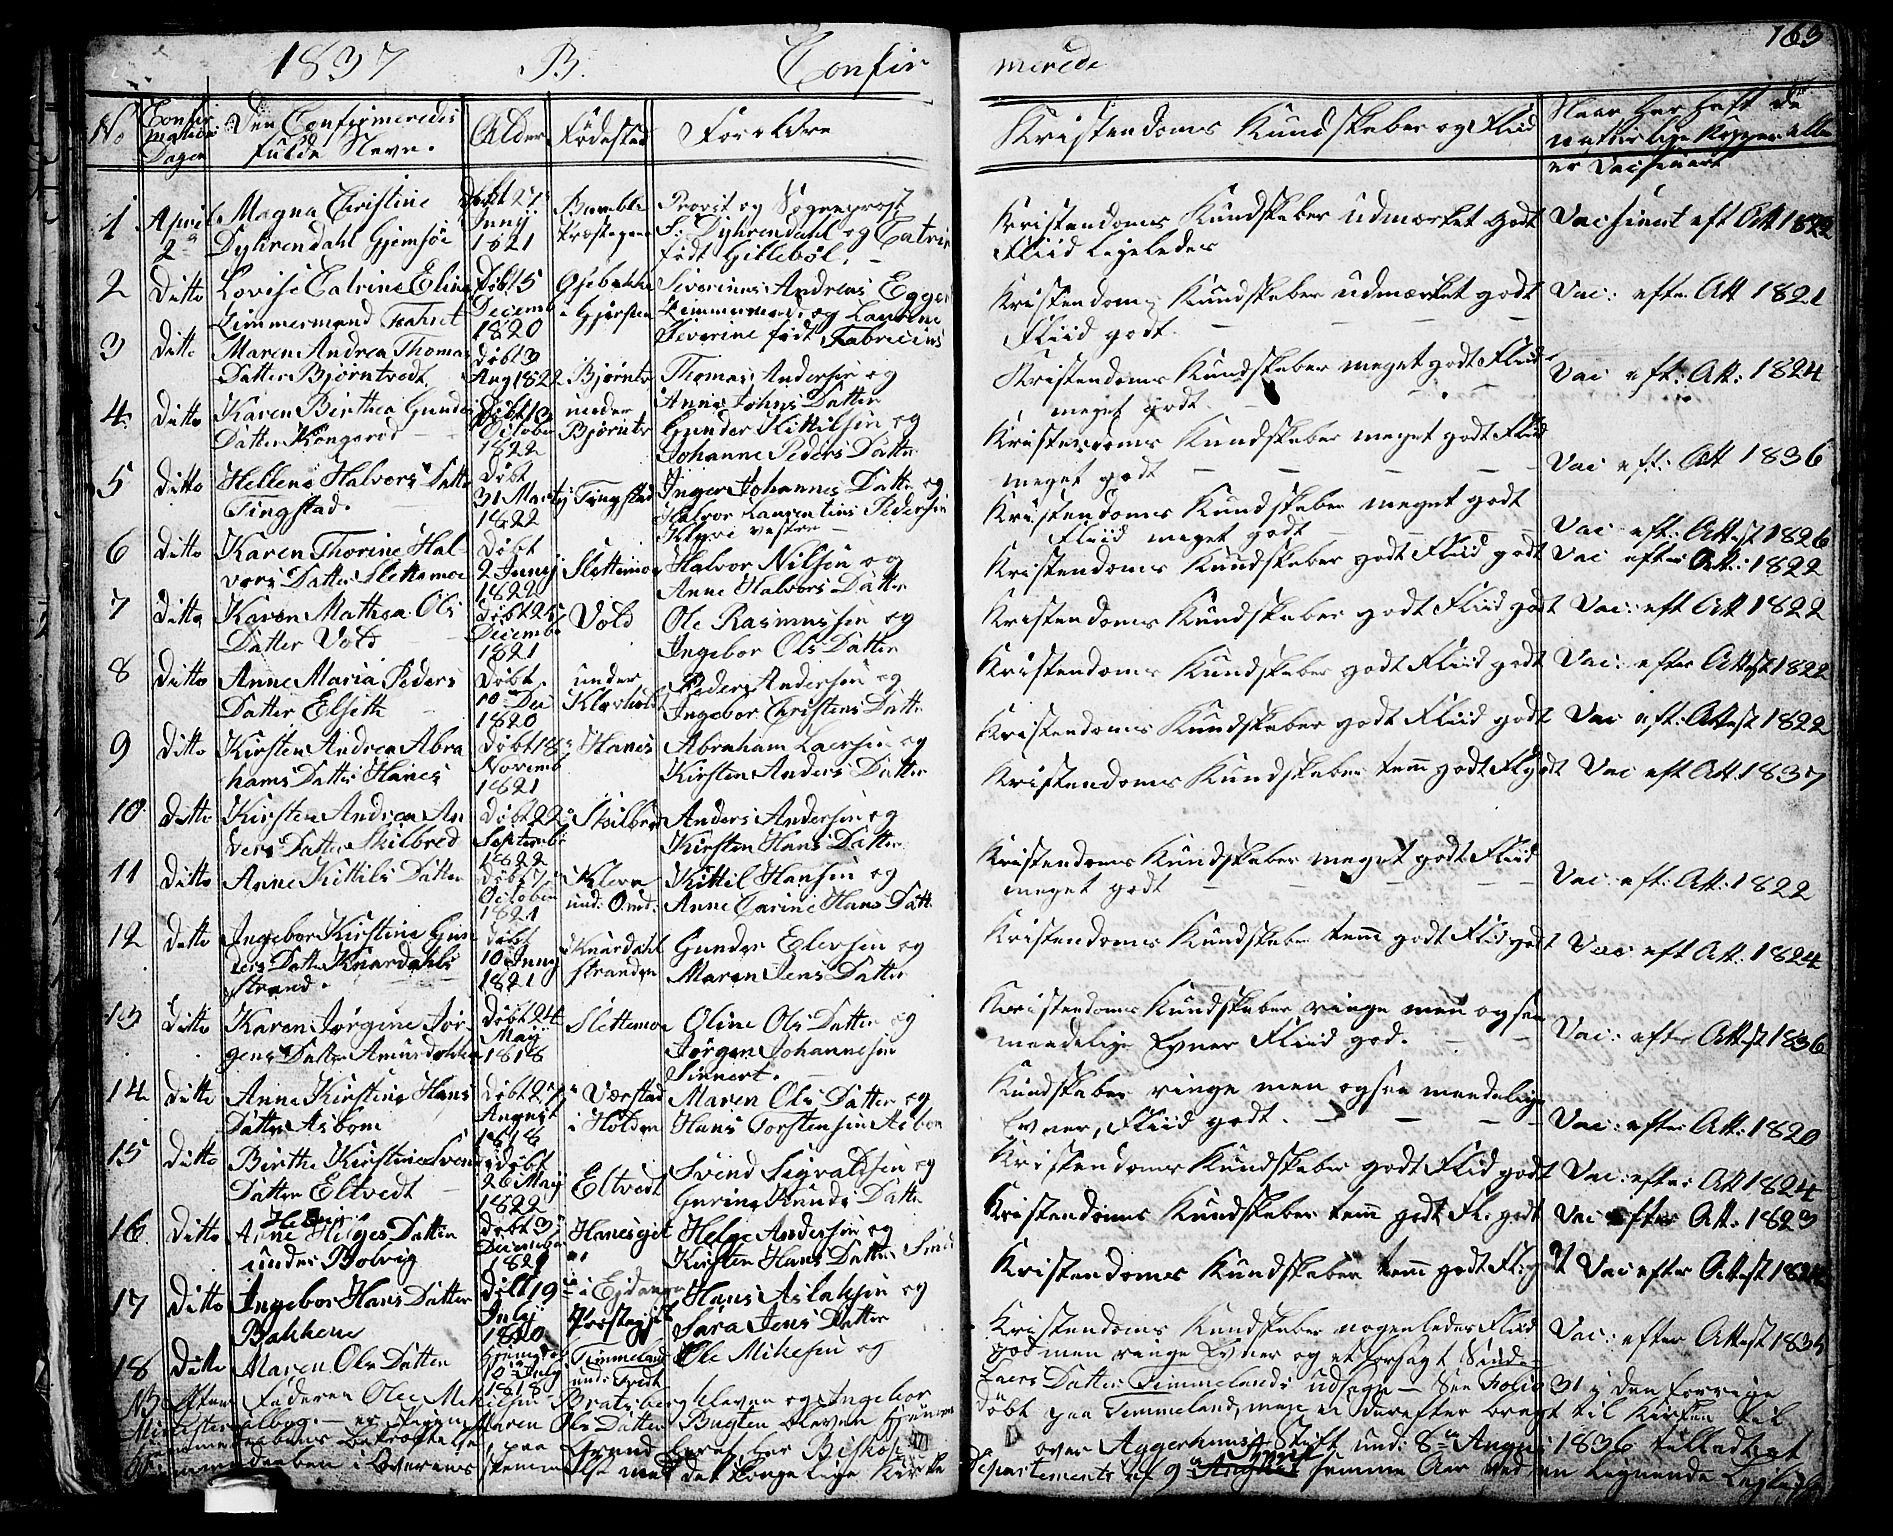 1837 B. Confir
merede 163
No Confirmations Dagen Den Confirmeredes fulde Navn. Alder Fødested Forældre Kristendoms Kundskaber og Fliid Naar har haft de naturlige Kopper eller er Vacsineret
1 April 2 Magna Christine Døbt 27 Juny 1821 Bamble Præstegaard Provst og Sogneprest Kristendoms Kundskaber udmærket godt Vacsineret eft Att 1822
Dyhrendahl Gjemsøe S: Dyhrendahl og Catrine født Gillebøl. Fliid Ligeledes
2 Ditto Lovise Catrine Elina Døbt 5 Decemb 1820 Osebakke i Gjersten Severinus Andreas Egger Kristendoms Kundskaber udmærket godt Vac: efter Att 1821
Zimmermand Zimmerman og Laurine Severine født Fabricius Fliid godt.
3 Ditto Maren Andrea Thomas Datter Bjørntvedt Døbt 3 Aug 1822 Bjørntv Thomas Andersen og Anne Johns Datter Kristendoms Kundskaber meget godt Fliid meget godt Vac eft: Att: 1824
4 Ditto Karen Birthea Gunders Datter Kongerød Døbt 13 October 1822 under Bjørntv Gunder Kittilsen og Johanne Peders Datter Kristendoms Kundskaber meget godt Fliid meget godt Vac eft: Att 1836
5 Ditto Hellene Halvors Datter Tingstad. Døbt 31 Marty 1822 Tingstad Inger Johannes Datter og Halvor Laurentius Pedersen Klyve vestre Kristendoms Kundskaber meget godt Fliid meget godt Vac eft: Attest 1826
6 Ditto Karen Thorine Halvors Datter Slettemoe Døbt 2 Juny 1822 Slettemoe Halvor Nilsen og Anne Halvors Datter Kristendoms Kundskaber godt Fliid godt Vac efter Att: 1822
7 Ditto Karen Mathea Ols Datter Vold Døbt 25 Decemb 1821 Vold Ole Rasmussen og Ingebor Ols Datter Kristendoms Kundskaber godt Fliid godt Vac: eft Att 1822
8 Ditto Anne Maria Peders Datter Elseth Døbt 10 Dec 1820 under Klovholt Peder Andersen og Ingebor Christens Datter Kristendoms Kundskaber godt Fliid godt Vac: efter Attest 1822
9 Ditto Kirsten Andrea Abrahams Datter Hanes Døbt 18 Novemb 1821 Hanes Abraham Laersen og Kirsten Anders Datter Kristendoms Kundskaber godt Fliid godt Vac eft: Attest 1822
10 Ditto Kirsten Andrea Anders Datter Skilbred Døbt 22 Septembe 1822 Skilbred Anders Andersen og Kirsten Hans Datter Kristendoms Kundskaber tem godt Fl godt Vac eft Att. 1837
11 Ditto Anne Kittils Datter Døbt 7 October 1821 Kleva und: Omd: Kittil Hansen og Anne Carine Hans Datt Kristendoms Kundskaber meget godt Fliid meget godt Vac: eft: Att: 1822
12 Ditto Ingebor Kirstine Gunders Datter Knardahls strand. Døbt 10 Juny 1821 Knardahl stranden Gunder Elevsen og Maren Jens Datter Kristendoms Kundskaber tem godt Fliid godt Vac: eft Att: 1824
13 Ditto Karen Jørgine Jørgens Datter Døbt 24 May 1818 Slettemoe Oline Ols Datter og Jørgen Johannesen Sinnert. Kristendoms Kundskaber ringe men og saa maadelige Evner Fliid god. Vac: efter Attest 1836
14 Ditto Anne Kirstine Hans Datter Asbom Døbt 27 August 1818 Værstad i Holden Maren Ols Datter og Hans Torstensen Asbom Kundskaber ringe men ogsaa maadelige Evner, Fliid godt. Vac: efter Att: 1820
15 Ditto Birthe Kirstine Svends Datter Eltvedt døbt 26 May 1822 Eltvedt Svend Sigvaldsen og Gurine Knuds Datter Kristendoms Kundskaber godt Fliid godt Vac: efter Att 1824
16 Ditto Anne Helges Datter under Bolvig Døbt 3 December 1821 Hanesejet Helge Andersen og Kirsten Hans Datter Kristendoms Kundskaber tem godt Fl. godt Vac efter Att: 1823
17 Ditto Ingebor Hans Datter Bakkene døbt 19 July 1820 i Eidanger Præstegjeld Hans Aslaksen og Sara Jens Datter Kristendoms Kundskaber tem godt Fl: godt Vac efter Attest 1824
18 Ditto Maren Ols Datter 10 July 1818 Timmeland und: Ole Mikelsen og Kristendoms Kundskaber nogenledes Fliid god men ringe Evner og et forsagt Sind Vac: efter Attest 1835
NB Efter Faderen Ole Mikelsen Bratsberg Kleven og Ingebor Laers Datter Timmelands udsagn — See Folio 31 i den forrige
Ministerialbog — er Maren Ols Datter døbt paa Timmeland, men er derefter bragt til Kirken til
over Aggerhuus Stift und: 8de August 1836 tilladt at
i Overensstemmelse med det kongelige Kirke Departements af 9 April samme Aar ved en lignende